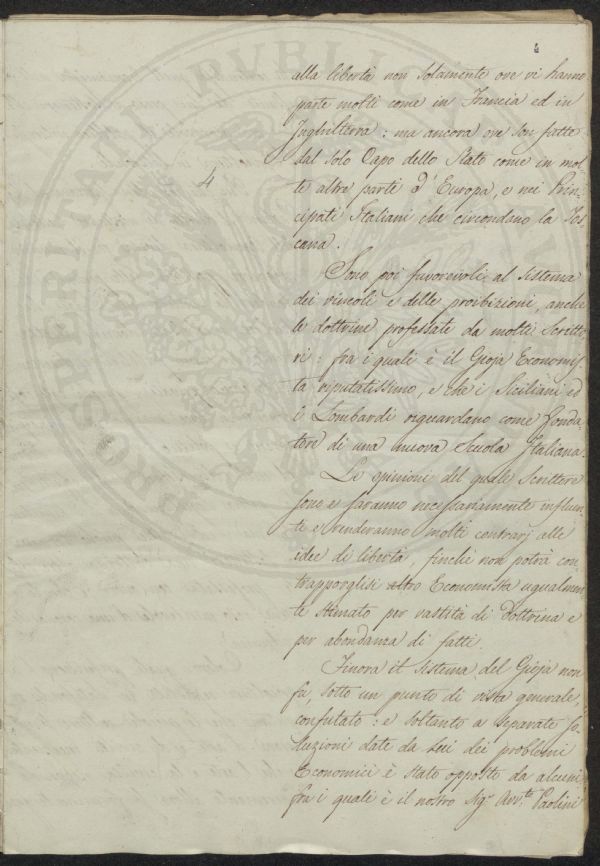 4
alla libertà non solamente ove vi hanno
parte molti come in Francia ed in
Inghilterra: ma ancora ove son fatte
dal solo Capo dello Stato come in mol-
te altre parti d'Europa, e nei Prin-
cipati Italiani che circondano la Tos-
cana.
Sono poi favorevoli al sistema
dei vincoli e delle proibizioni, anche
le dottrine professate da molti Scritto-
ri: fra i quali è il Gioja Economis-
ta riputatissimo, e che i Siciliani ed
i Lombardi riguardano come fonda-
tore di una nuova Scuola Italiana.
Le opinioni del quale Scrittore
sono e saranno necessariamente influen-
ti e renderanno molti contrarj alle
idee di libertà, finchè non potrà con-
trapporglisi altro Economista ugualmen-
te stimato per vastità di Dottrina e
per abondanza di fatti.
Finora il sistema del Gioja non
fu, sotto un punto di vista generale,
confutato: e soltanto a separate so-
luzioni date da lui dei problemi
Economici è stato opposto da alcuni
fra i quali è il nostro Sigr. Avvto. Paolini